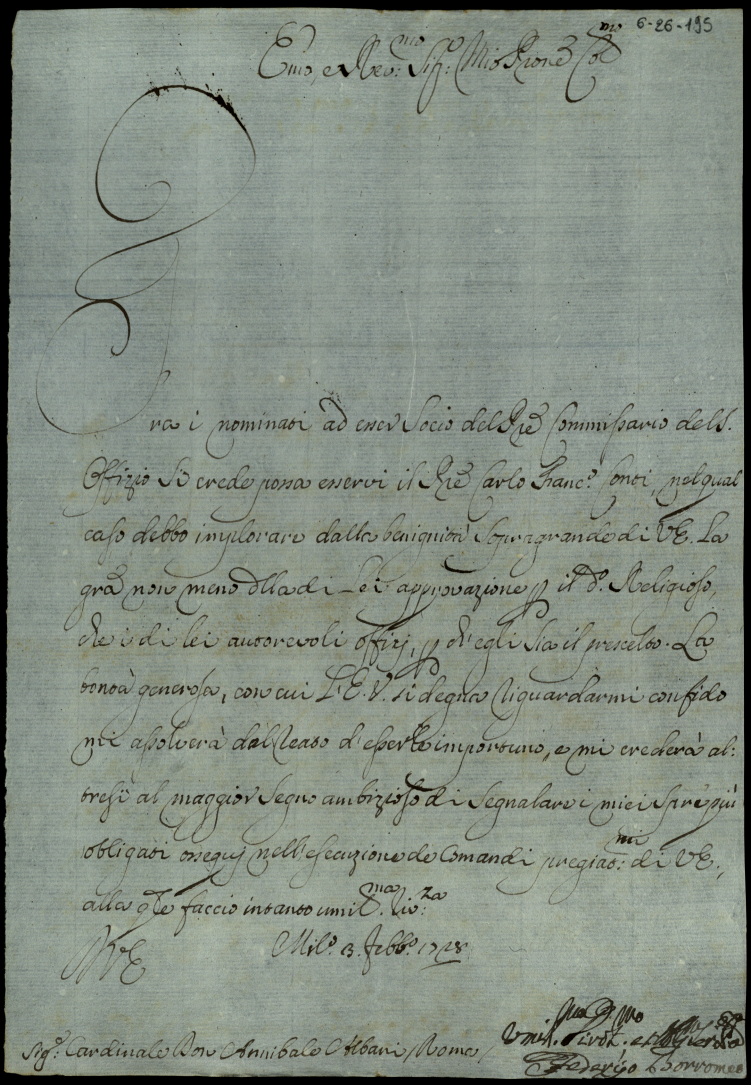 6-26-195
Emo, e Rev:mo Sig:r Mio Prone Colmo
Tra i nominati ad esser Socio del Pre Commissario del S.
Offizio si crede possa esservi il Pre Carlo Franc.o Conti, nel qual
caso debbo implorare dalla benignità sopragrande di VE. La
gra non meno dlla di Lei approvazione p il do. Religioso,
che i di lei autorevoli offizj, p ch'egli sia il prescelto. La
bontà generosa, con cui L'E.V. si degna riguardarmi confido
mi assolverà dal reato d'esserle importuno, e mi crederà al:
tresì al maggior segno ambizioso di segnalare i miei spre più
obligati ossequj nell'esecuzione de Comandi pregiat:mi di VE.,
alla qle faccio intanto umilma. riv:za
Mil.o 3. Febb.o 1728
DVE
Umil.mo Divot. et
Sig.r Cardinale Don Annibale Albani / Roma /
Federigo Borromeo